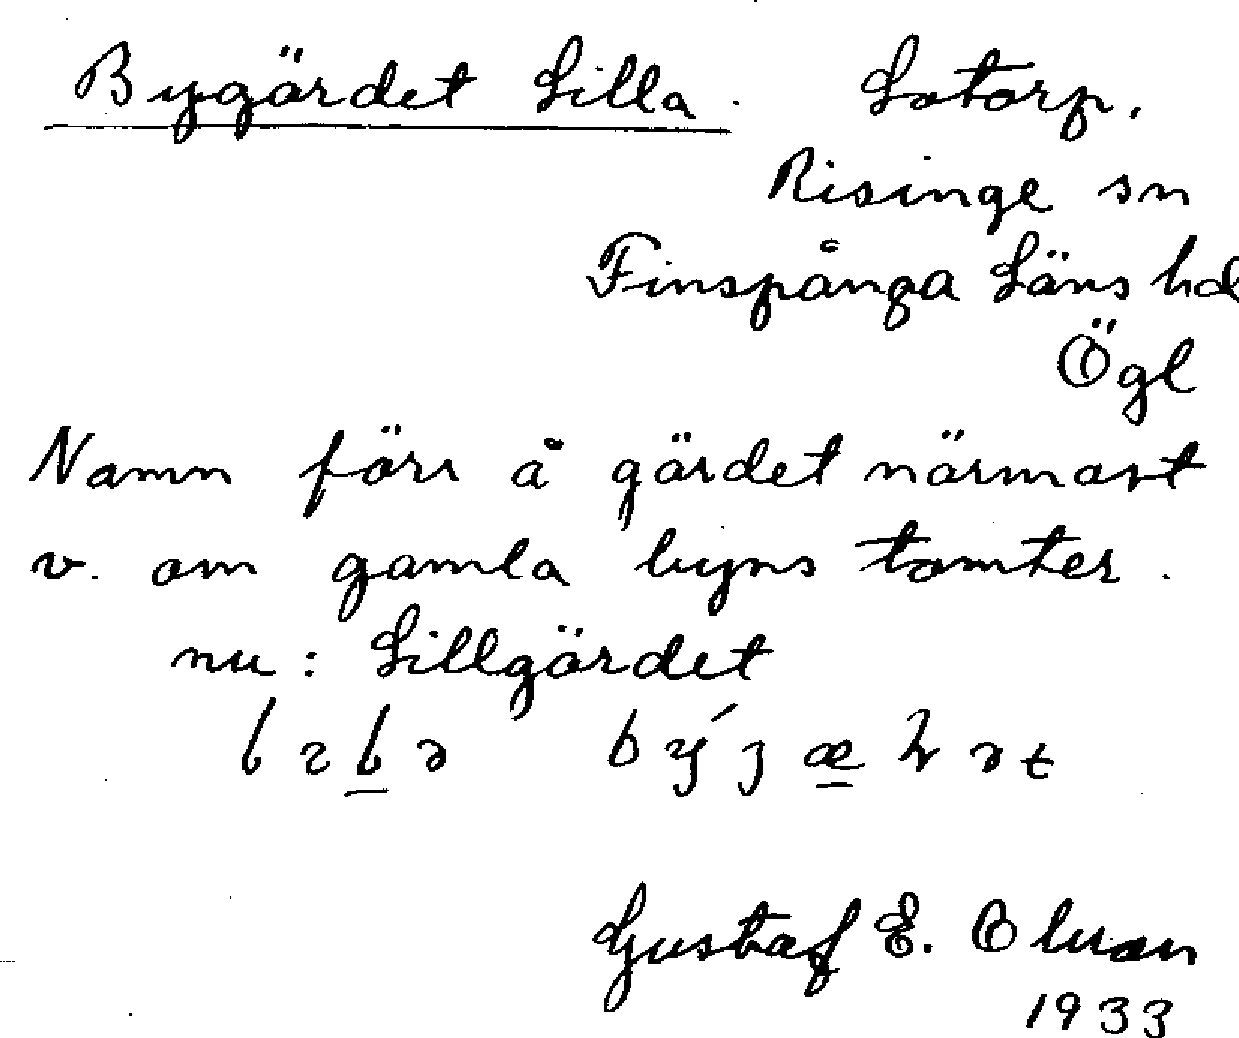 Bygärdet Lilla. Lotorp.
Risinge sn
Finspånga Läns hd
Ögl
Namn förr å gärdet närmast
v. om gamla byns tomter.
nu: Lillgärdet
Gustaf E.
1933